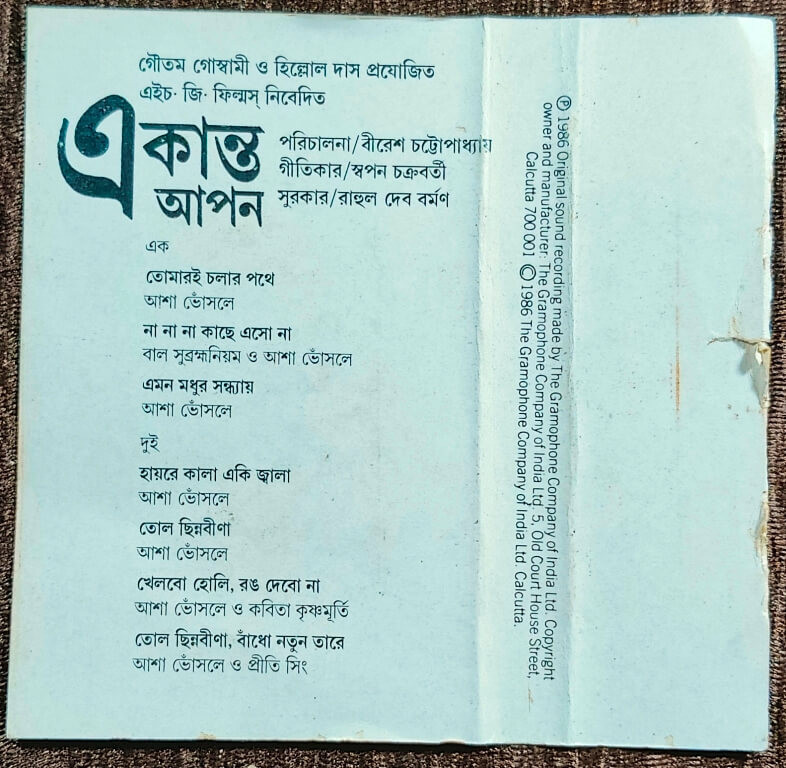 গৌতম গোস্বামী ও হিল্লোল দাস প্রযোজিত
এইচ· জি· ফিল্মস্ নিবেদিত
একান্ত
আপন
পরিচালনা/বীরেশ চট্টোপাধ্যায়
গীতিকার/স্বপন চক্রবর্তী
সুরকার/রাহুল দেব বর্মণ
এক
তোমারই চলার পথে
আশা ভোঁসলে
না না না কাছে এসো না
বাল সুব্রহ্মনিয়ম ও আশা ভোঁসলে
এমন মধুর সন্ধ্যায়
আশা ভোঁসলে
দুই
হায়রে কালা একি জ্বালা
আশা ভোঁসলে
তোল ছিন্নবীণা
আশা ভোঁসলে
খেলবো হোলি, রঙ দেবো না
আশা ভোঁসলে ও কবিতা কৃষ্ণমূর্তি
তোল ছিন্নবীণা, বাঁধো নতুন তারে
আশা ভোঁসলে ও প্রীতি সিং
Ⓟ 1986 Original sound recording made by The Gramophone Company of India Ltd. Copyright
owner and manufacturer: The Gramophone Company of India Ltd. 5, Old Court House Street,
Calcutta 700 001 © 1986 The Gramophone Company of India Ltd. Calcutta.